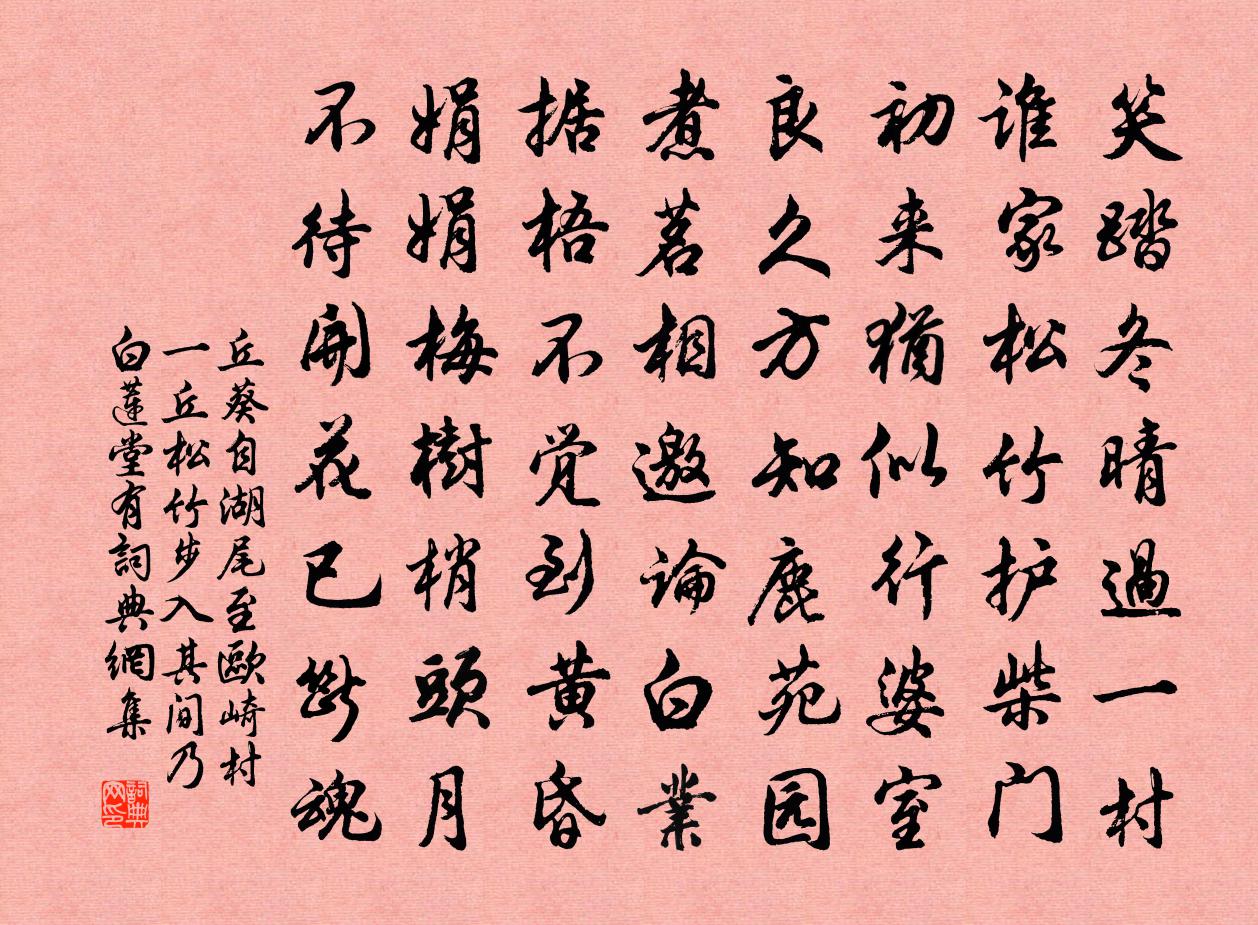 笑踏冬晴過一村
谁家松竹护柴门
初来猶似行婆室
良久方知鹿苑园
煮茗相邀論白業
据梧不觉到黄昏
娟娟梅樹梢頭月
不待開花已斷魂
丘葵自湖尾至歐崎村
一丘松竹步入其间乃
白蓮堂有詞典網集
詞典网印